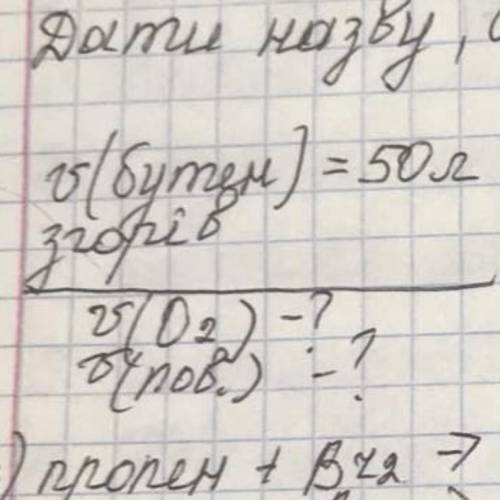 Дати назву,
v(бутен) = 50л
згорів
v(O2) - ?
v(пов.) - ?
) пропен + Br2 →